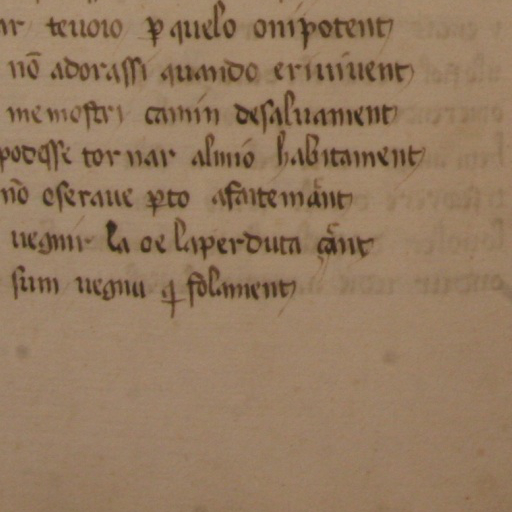 ar teuoio ꝑ quelo onipotent
nō adorassi quando eriuiuent
me mostri camin desaluament
podesse tornar almio habitament
nō oseraue ꝑto afaitemānt
uegnir la oe laperduta çānt
sum uegnu qi folament